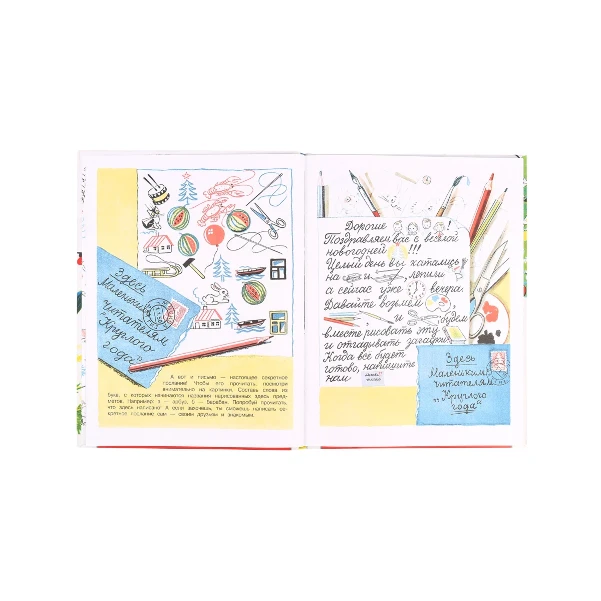 Здесь
Маленьким
читателям
"Круглого
года"
А вот и письмо — настоящее секретное
послание! Чтобы его прочитать, посмотри
внимательно на картинки. Составь слова из
букв, с которых начинаются названия нарисованных здесь пред-
метов. Например: а — арбуз, б — барабан. Попробуй прочитать,
что здесь написано! А если захочешь, ты сможешь написать се-
кретное послание сам — своим друзьям и знакомым.
Дорогие !
Поздравляем вас с весёлой
новогодней !!!
Целый день вы катались
на и , лепили
а сейчас уже вечера
Давайте возьмём
и , будем
вместе рисовать эту
и отгадывать загадки.
Когда всё будет
готово, напишите
нам
Здесь
Маленьким
читателям
"Круглого
года"